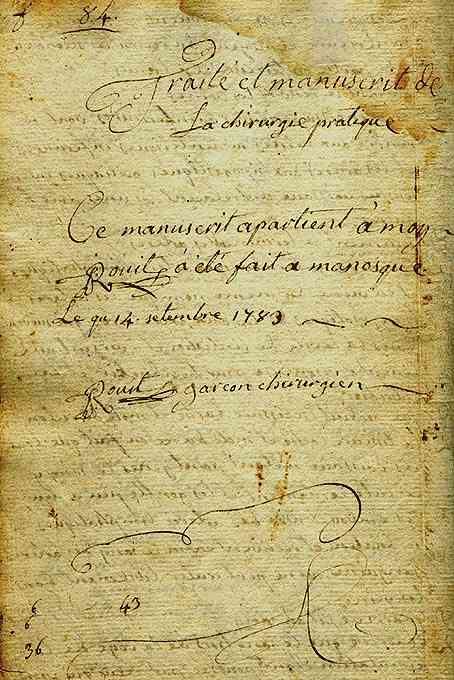 84.
Traité et manuscrit de
La chirurgie pratique
Ce manuscrit apartient à moy
Rouit à été fait a manosque
Le qu 14 setembre 1783
Rouit garcon chirurgien
43
6
6
36